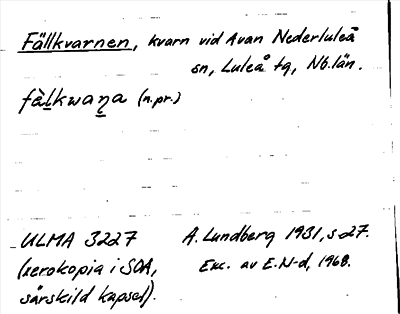 Fällkvarnen, kvarn vid Avan Nederluleå
sn, Luleå tg, Nb.län.
fälkwaṇa (n.pr.)
ULMA 3227 A. Lundberg 1931, s 27.
(xerokopia i SOA, Exc. av E.N-d, 1968.
särskild kapsel).